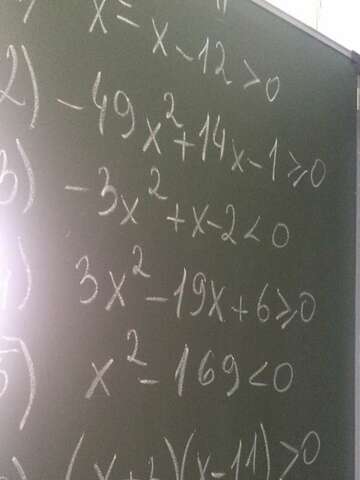 x² - x - 12 > 0
2) -49x² + 14x - 1 ≥ 0
3) -3x² + x - 2 < 0
4) 3x² - 19x + 6 ≥ 0
5) x² - 169 < 0
(x - 11) > 0